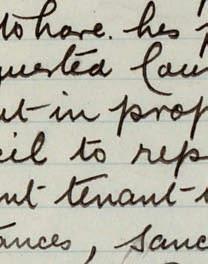 to have. hes p
quested Cou
ut-in prop
cil to rep
ent tenant-
ances, sanc